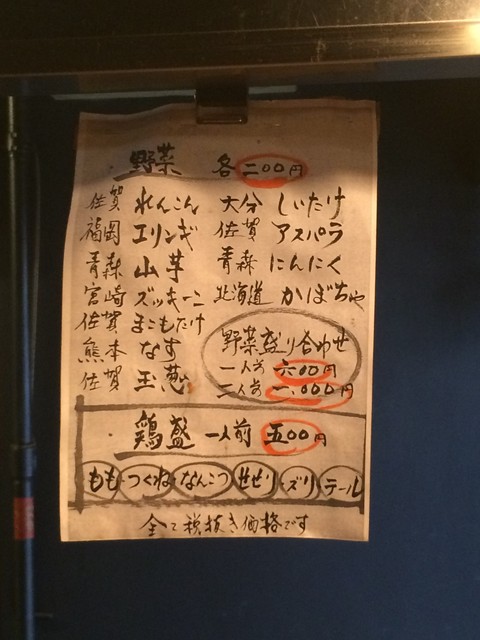 野菜 各二〇〇円
佐賀 れんこん
福岡 エリンギ
青森 山芋
宮崎 ズッキーニ
佐賀 まこもたけ
熊本 なす
佐賀 玉葱
大分 しいたけ
佐賀 アスパラ
青森 にんにく
北海道 かぼちゃ
野菜盛り合わせ
一人前 六〇〇円
二人前 一、〇〇〇円
鶏盛 一人前 五〇〇円
もも つくね なんこつ せせり ズリ テール
全て税抜き価格です